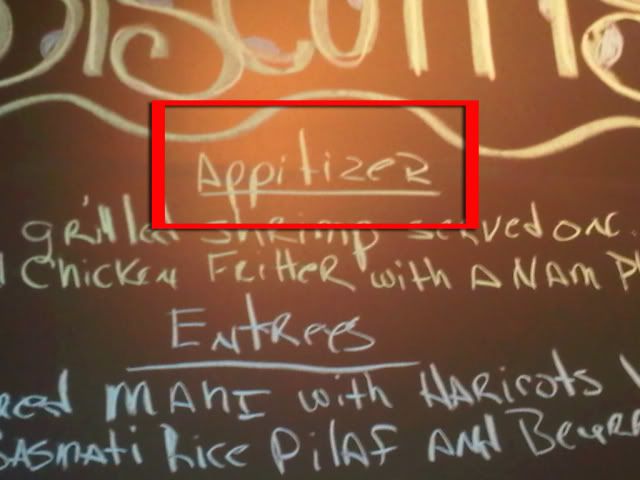 Appitizer
grilled shrimp served on
Chicken Fritter with A NAM
Entrees
MAHI with HARicots
BASMati Rice Pilaf AND